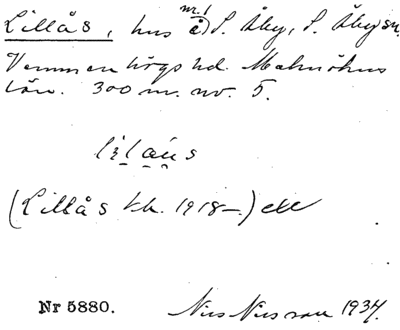 Lillås, hus nr. 1 å) S. Åby, S. Åbysn.
Vemmenhögs hd. Malmöhus
län. 300 m. nv. 5.
(Lillås kk. 1918–)
Nr 5880. Nils Nilsson 1934.